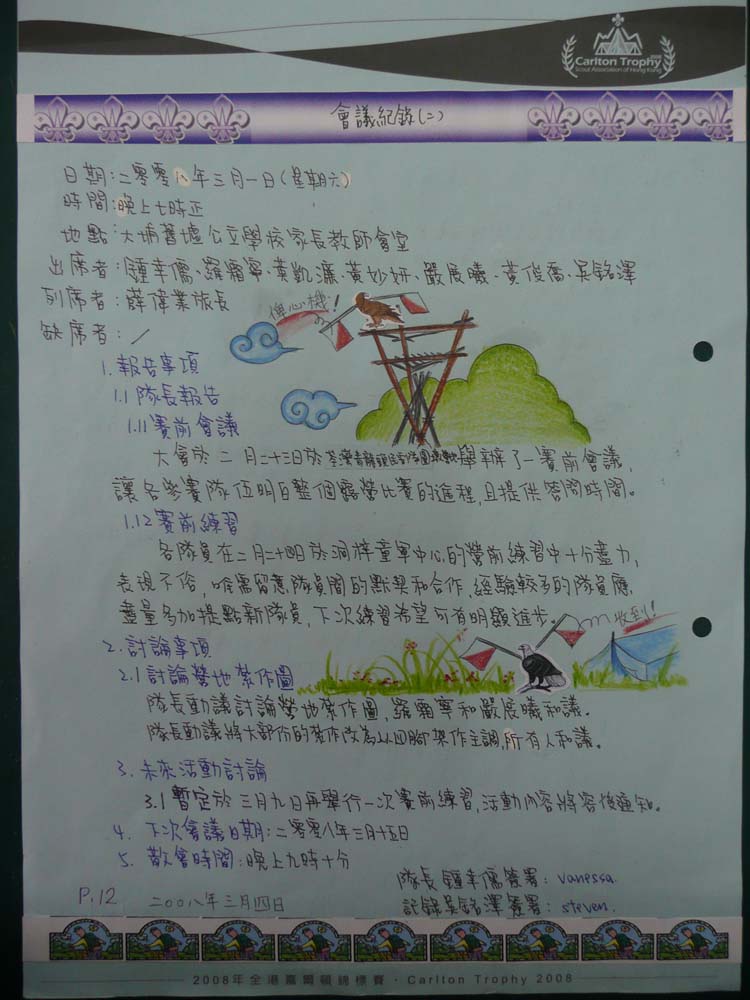 Carlton Trophy
Scout Association of Hong Kong
會議紀錄(二)
日期:二零零八年三月一日(星期六)
時間:晚上七時正
地點:大埔舊墟公立學校家長教師會室
出席者:鍾幸儒、羅爾寧、黃凱濂、黃妙妍、嚴展曦、黃俊喬、吳銘澤
列席者:薛偉業旅長
俾心機!
缺席者:/
1.報告事項
1.1隊長報告
1.11賽前會議
大會於二月二十三日於荃灣青龍頭 舉辦了一賽前會議,
讓各參賽隊伍明白整個露營比賽的進程,且提供答問時間。
1.12賽前練習
各隊員在二月二十四日於洞梓童軍中心的營前練習中十分盡力,
表現不俗,唯需留意隊員間的默契和合作,經驗較多的隊員應
盡量多加提點新隊員,下次練習希望可有明顯進步。
收到!
2.討論事項
2.1討論營地紮作圖
隊長動議討論營地紮作圖,羅爾寧和嚴展曦和議。
隊長動議將大部份的紮作改為以四腳架作主調,所有人和議。
3.未來活動討論
3.1暫定於三月九日再舉行一次賽前練習,活動內容將容後通知。
4.下次會議日期:二零零八年三月十五日
5.散會時間:晚上九時十分
隊長鍾幸儒簽署:vanessa.
P.12 二00八年三月四日
記錄吳銘澤簽署:steven.
2008年全港嘉爾頓錦標賽·Carlton Trophy 2008